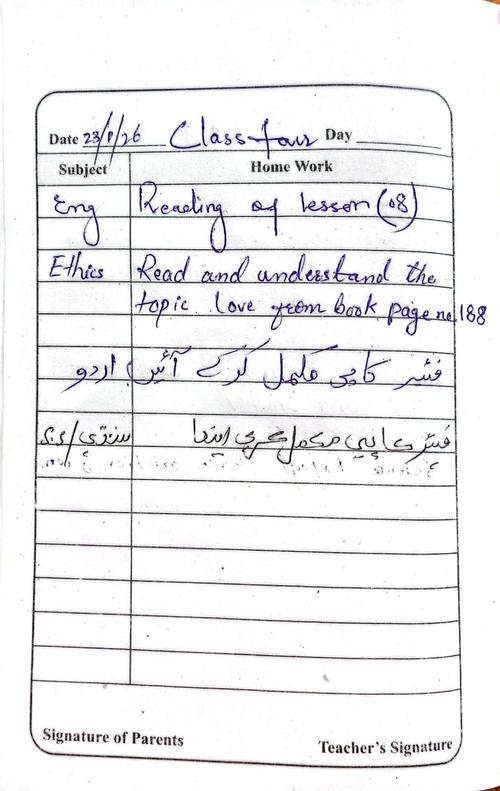 Date 23/1/26 Class four Day
Subject Home Work
Eng Reading of lesson (08)
Ethics Read and understand the
topic love from book page no 188
اردو فئیر کاپی مکمل کر کے آئیں
سنڌي فيئر ڪاپي مڪمل ڪري ايندا
Signature of Parents Teacher's Signature